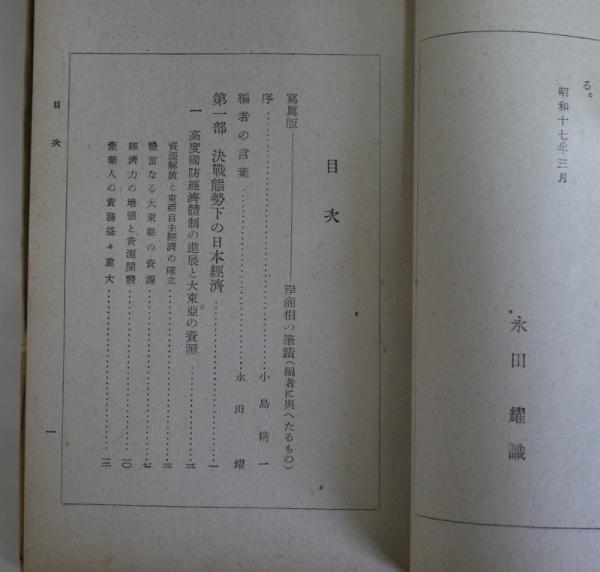 る。
昭和十七年三月
永田耀識
目次
寫眞版――岸商相の筆蹟(編者に與へたるもの)
序……小島精一
編者の言葉……永田耀
第一部 決戰態勢下の日本經濟……一
一 高度國防經濟體制の進展と大東亞の資源……三
資源解放と東亞自主經濟の確立……三
豐富なる大東亞の資源……七
經濟力の增强と資源開發……一〇
產業人の責務益々重大……一三
目次
一